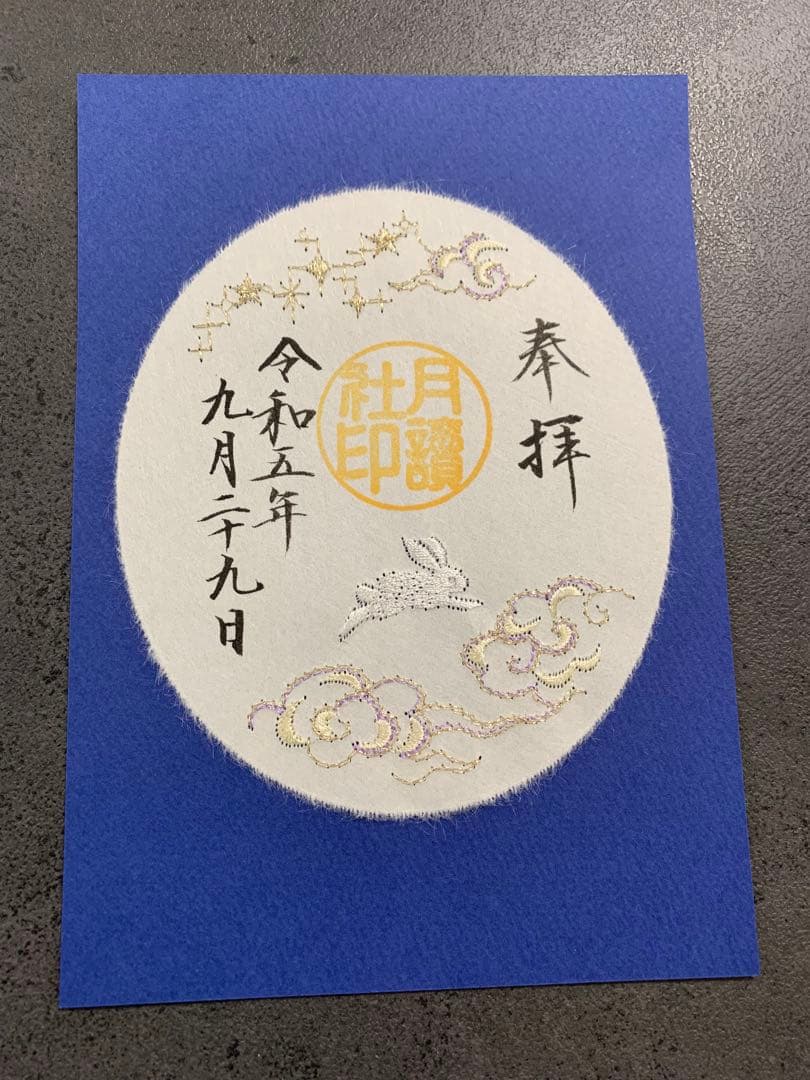 奉拝
月讀
社印
令和五年
九月二十九日